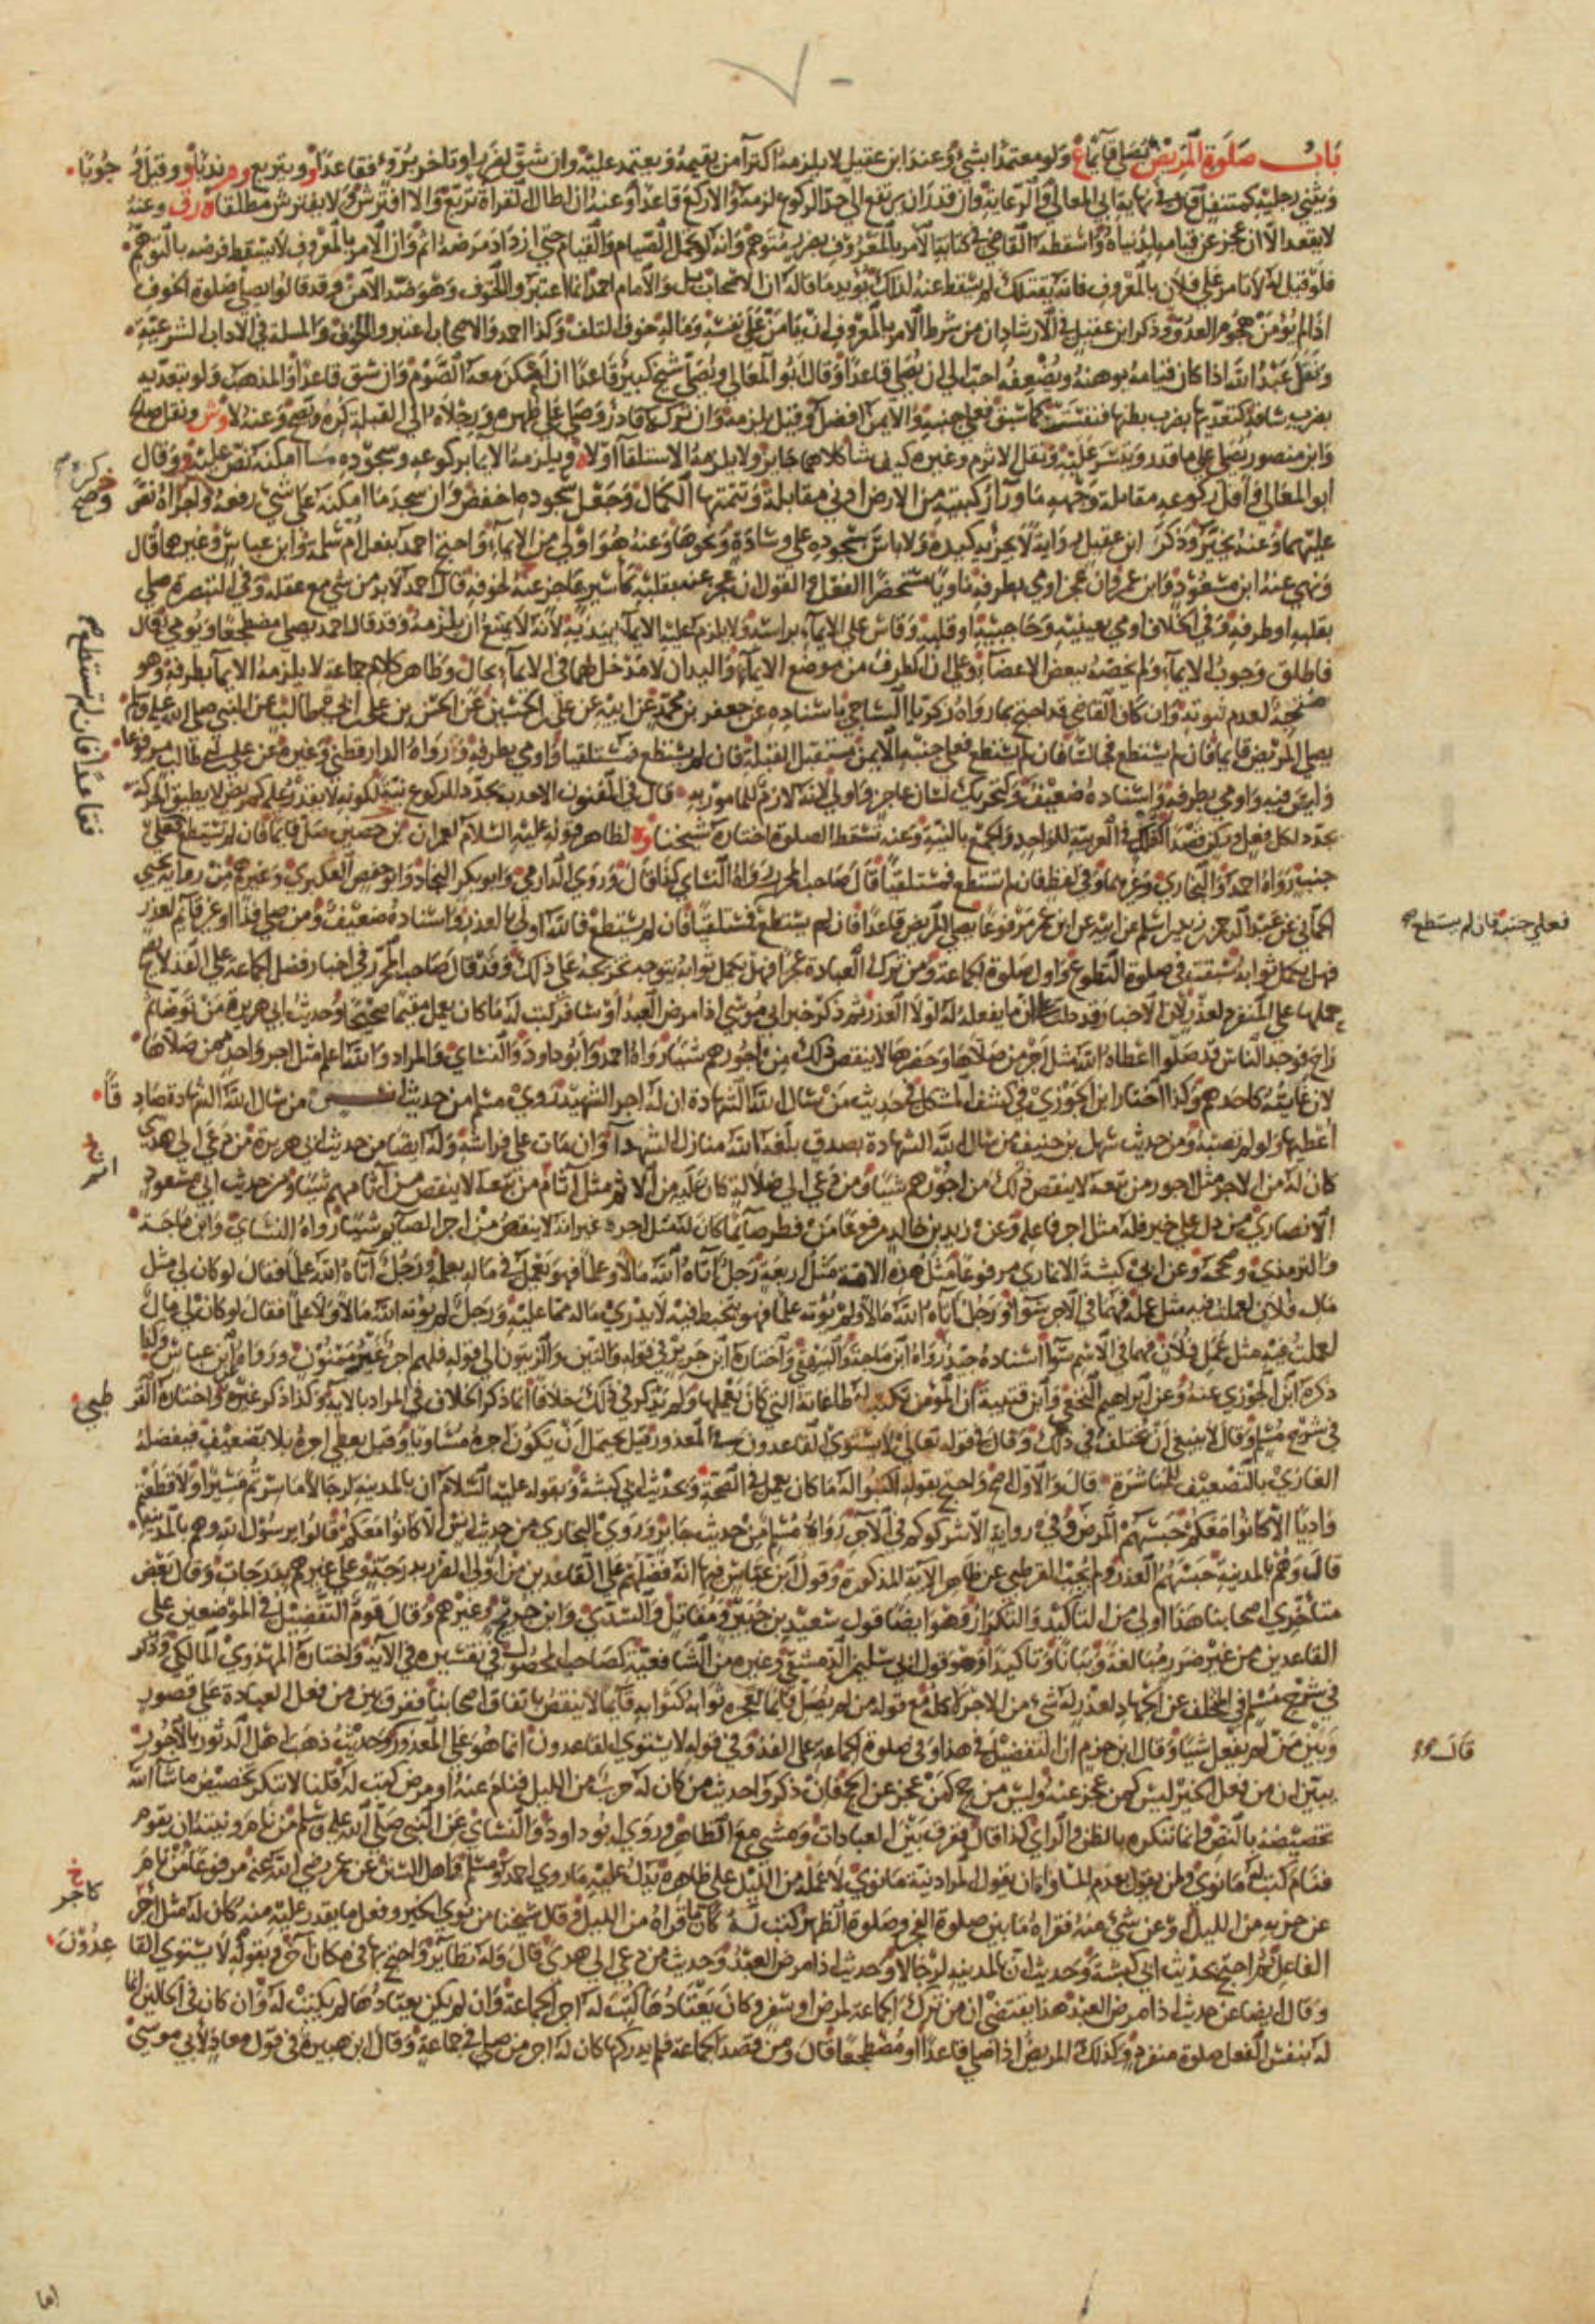 باب صلوة المريض يصلي قائما ع ولو معتمدا بشئ وعند ابن عقيل لا يلزمه اكترا من يقيمه ويعتمد عليه وان شق لضرر او تاخر برؤ فقاعدا و ويتربع وم ندبا و وقيل وجوبا
ويثني رجليه كمتنفل قال في نهاية ابي المعالي والرعاية وان قدر ان يرتفع الى حد الركوع لزمه والا ركع قاعدا وعنه ان اطال القراة تربع والا افترش ولا يفترش مطلقا ورق وعنه
لا يقعد الا ان عجز عن قيامه لدنياه واسقطه القاضي في كتابه الامر بالمعروف بضرب متوهم وانه لو تحمل الصيام والقيام حتى ازداد مرضه اثم وان الامر بالمعروف لا يسقط فرضه بالتوهم
فلو قيل له لا تامر على فلان بالمعروف فانه يقتلك لم يسقط عنه لذلك يؤيد ما قاله ان الاصحاب بل والامام احمد انما اعتبروا الخوف وهو ضد الامن وقد قالوا يصلي صلوة الخوف
اذا لم يؤمن هجوم العدو وذكر ابن عقيل في الارشاد ان من شرط الامر بالمعروف ان يامن على نفسه وماله خوف التلف وكذا احمد والاصحاب اعتبروا الخوف والمسلة في الاداب الشرعية
ونقل عبد الله اذا كان قيامه يوهنه ويضعفه احب الي ان يصلي قاعدا وقال ابو المعالي ويصلي شيخ كبير قاعدا ان امكن معه الصوم وان شق قاعدا والمذهب ولو بتعديه
بضرب ساقه كتعديها بضرب بطنها فنفست كما سبق فعلى جنبه والايمن افضل وقيل يلزمه وان تركه قادر وصلى على ظهره ورجلاه الى القبلة كره وتصح وعنه لا وش ونقل صالح
وابن منصور يصلي على ما قدر وتيسر عليه ونقل الاثرم وغيره كيف شا كلاهما جايز ولا يلزمه الاستلقا اولا ويلزمه الايما بركوعه وسجوده ما امكنه نص عليه وقال
ابو المعالي واقل ركوعه مقابلة وجهه ما ورآ ركبتيه من الارض ادنى مقابلة وتتمتها الكمال وجعل سجوده اخفض وان سجد ما امكنه على شئ رفعه كره واجزاه نص
عليهما وعنه يخير وذكر ابن عقيل رواية لا يجزيه كيده ولا باس بسجوده على وسادة ونحوها وعنه هو اولى من الايمآ واحتج احمد بفعل ام سلمة وابن عباس وغيرهما قال
ونهى عنه ابن مسعود وابن عمر وان عجز اومى بطرفه ناويا مستحضرا الفعل والقول ان عجز عنه بقلبه كاسير عاجز عنه لخوفه قال احمد لا بد من شئ مع عقله وفي التبصرة صلى
بقلبه او طرفه وفي الخلاف اومى بعينيه وحاجبيه او قلبه وقاس على الايمآ براسه ولا يلزم عليه الايمآ بيديه لانه لا يمتنع ان يلزمه وقد قال احمد يصلي مضطجعا ويومى قال
فاطلق وجوب الايمآ ولم يخصه ببعض الاعضآ وعلى ان الطرف من موضع الايمآ واليدان لا مدخل لهما في الايمآ بحال وظاهر كلام جماعة لا يلزمه الايما بطرفه وهو
متجه لعدم ثبوته وان كان القاضي قد احتج بما رواه زكريا الساجي باسناده عن جعفر بن محمد عن ابيه عن علي بن الحسين عن الحسن بن علي بن ابي طالب عن النبي صلى الله عليه وسلم
يصلي المريض قائما فان لم يستطع فجالسا فان لم يستطع فعلى جنبه الايمن مستقبل القبلة فان لم يستطع فمستلقيا واومى بطرفه ورواه الدارقطني وغيره عن علي بن ابي طالب مرفوعا
وليس فيه واومى بطرفه واسناده ضعيف وكتحريك لسان عاجز واولى لانه لازم للمامور به قال في الفنون الاحدب يجدد للركوع نيته لكونه لا يقدر عليه كمريض لا يطيق الحركة
يجدد لكل فعل وركن قصدا كفلك في العربية للواحد والجمع بالنية وعنه تسقط الصلوة اختاره شيخنا وه لظاهر قوله عليه السلام لعمران بن حصين صل قائما فان لم تستطع فعلى
جنب رواه احمد والبخاري وغيرهما وفي لفظ فان لم تستطع فمستلقيا قال صاحب المحرر رواه النساي كذا قال وروى الدارمي وابو بكر النجاد وابو حفص العكبري وغيرهم من رواية يحيى
الحماني عن عبد الرحمن بن زيد بن اسلم عن ابيه عن ابن عمر مرفوعا يصلي المريض قاعدا فان لم يستطع فمستلقيا فان لم يستطع فالله اولى بالعذر واسناده ضعيف ومن صلى فذا او غير قايم لعذر
فهل يكمل ثوابه سبقت في صلوة التطوع واول صلوة الجماعة ومن ترك العبادة عجزا فهل يكمل ثوابه يتوجه تخريجه على ذلك وقد قال صاحب المحرر في اخبار فضل الجماعة على الفذ لا يصح
حملها على المنفرد لعذر لان الاخبار قد دلت على ان ما يفعله له لولا العذر ثم ذكر خبر ابي موسى اذا مرض العبد او سافر كتب له ما كان يعمل مقيما صحيحا وحديث ابي هريرة من توضا ثم
راح فوجد الناس قد صلوا اعطاه الله مثل اجر من صلاها وحضرها لا ينقص ذلك من اجورهم شيا رواه احمد وابو داود والنساي والمراد والله اعلم مثل اجر واحد ممن صلاها
لان غايته كاحدهم وكذا اختار ابن الجوزي في كشف المشكل في حديثه من سال الله الشهادة ان له اجر الشهيد روى مسلم من حديث انس من سال الله الشهادة صادقا
اعطيها ولو لم تصبه ومن حديث سهل بن حنيف من سال الله الشهادة بصدق بلغه الله منازل الشهدآ وان مات على فراشه وله ايضا من حديث ابي هريرة من دعى الى هدى
كان له من الاجر مثل اجور من تبعه لا ينقص ذلك من اجورهم شيا ومن دعى الى ضلالة كان عليه من الاثم مثل آثام من تبعه لا ينقص من آثامهم شيا ومن حديث ابي مسعود
الانصاري من دل على خير فله مثل اجر فاعله وعن زيد بن خالد مرفوعا من فطر صآيما كان له مثل اجره غير انه لا ينقص من اجر الصآيم شيا رواه النساي وابن ماجة
والترمذي وصححه وعن ابي كبشة الانماري مرفوعا مثل هذه الامة مثل اربعة رجل آتاه الله مالا وعلما فهو يعمل في ماله بعلمه ورجل آتاه الله علما فقال لو كان لي مثل
مال فلان لعملت فيه مثل عمله فهما في الاجر سوا ورجل آتاه الله مالا ولم يؤته علما فهو يتخبط فيه لا يدري ماله مما عليه ورجل لم يؤته الله مالا ولا علما فقال لو كان لي مال
لعملت فيه مثل عمل فلان فهما في الاثم سوآ اسناده جيد رواه ابن ماجة والبيهقي واختاره ابن جرير في قوله والتين والزيتون الى قوله فلهم اجر غير ممنون ورواه ابن عباس وكذا
ذكره ابن الجوزي عنه وعن ابراهيم النخعي وابن قتيبة ان المؤمن تكتب له طاعاته التي كان يعملها ولم يذكر في ذلك خلافا انما ذكر الخلاف في المراد بالاية وكذا ذكر غيره واختاره القرطبي
في شرح مسلم وقال لا ينبغي ان يختلف في ذلك وقال في قوله تعالى لا يستوي القاعدون في المعذور قيل يحتمل ان يكون اجره مساويا وقيل يعطى اجره بلا تضعيف فيفضله
الغازي بالتضعيف للمباشرة قال والاول اصح واحتج بقوله اكتبوا له ما كان يعمل في الصحة وبحديث ابي كبشة وبقوله عليه السلام ان بالمدينة لرجالا ما سرتم مسيرا ولا قطعتم
واديا الا كانوا معكم حبسهم المرض وفي رواية الا شركوكم في الاجر رواه مسلم من حديث جابر وروى البخاري من حديث انس الا كانوا معكم قالوا يا رسول الله وهم بالمدينة
قال وهم بالمدينة حبسهم العذر ولم يجب القرطبي عن ظاهر الاية المذكورة وقول ابن عباس فيها انه فضلهم على القاعدين من اولى الضرر بدرجة وعلى غيرهم بدرجات وقال بعض
متاخرى اصحابنا هذا اولى من التاكيد والتكرار وهو ايضا قول سعيد بن جبير ومقاتل والسدي وابن جريج وغيرهم وقال قوم التفضيل في الموضعين على
القاعدين من غير ضرر مبالغة وبيانا وتاكيدا وهو قول ابي سليمان الدمشقي وغيره من الشافعية كصاحب المحصول في تفسيره في الاية واختاره المهدوي المالكي وذكر
في شرح مسلم في المتخلف عن الجهاد لعذر له شئ من الاجر لا كله مع قوله من لم يصل قائما لعجزه ثوابه كثوابه قآيما لا ينقص باتفاق اصحابنا ففرق بين من فعل العبادة على قصور
وبين من لم يفعل شيا وقال ابن حزم ان التفضيل في هذا وفي صلوة الجماعة على الفذ وفي قوله لا يستوي القاعدون انما هو على المعذور كحديث ذهب اهل الدثور بالاجور
يبين ان من فعل الخير ليس كمن عجز عنه وليس من حج كمن عجز عن الحج فان ذكروا حديث من كان له حزب من الليل فنام عنه او مرض كتب له قلنا لا ننكر تخصيص ما شآ الله
تخصيصه بالنص وانما ننكره بالظن والراي كذا قال ففرق بين العبادات ومشى مع الظاهر وروى ابو داود والنساي عن النبي صلى الله عليه وسلم من نام ونيته ان يقوم
فنام كتب له ما نوى ولمن يقول بعدم المساواة ان يقول المراد نية ما نوى لا عمله من الليل على ظاهره يدل عليه ما روى احمد ومسلم واهل السنن عن عمر رضي الله عنه مرفوعا من نام
عن حزبه من الليل او عن شئ منه فقراه ما بين صلوة الفجر وصلوة الظهر كتب له كانما قراه من الليل وقال شيخنا من نوى الخير وفعل ما يقدر عليه منه كان له مثل اجر
الفاعل ثم احتج بحديث ابي كبشة وحديث ان بالمدينة لرجالا وحديث اذا مرض العبد وحديث من دعى الى هدى قال وله نظآير واحتج بها في مكان آخر وبقوله لا يستوي القاعدون
وقال ايضا عن حديث اذا مرض العبد هذا يقتضي ان من ترك الجماعة لمرض او سفر وكان يعتادها كتب له اجر الجماعة وان لم يكن يعتادها لم يكتب له وان كان في الحالين انما
له بنفس الفعل صلوة منفرد وكذلك المريض اذا صلى قاعدا او مضطجعا قال ومن قصد الجماعة فلم يدركها كان له اجر من صلى في جماعة وقال ابن هبيرة في قول معاذ لابي موسى
فقاعدا فان لم تستطع
فعلى جنبه فان لم يستطع
قال
كاجر
اما